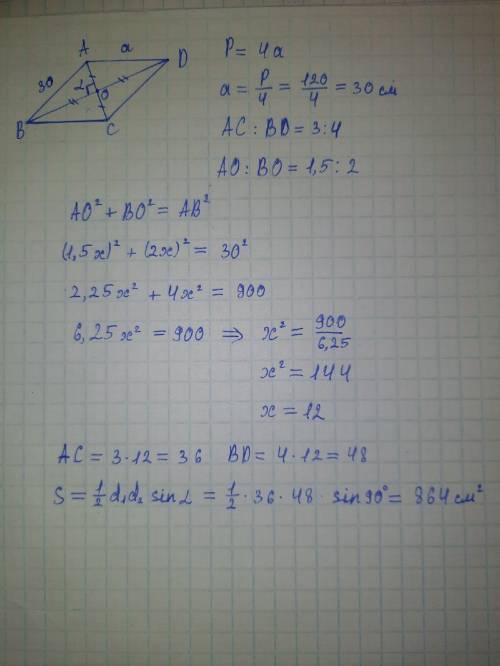 A a D
30 α O
B C
P = 4a
a = P/4 = 120/4 = 30 см
AC : BD = 3 : 4
AO : BO = 1,5 : 2
AO² + BO² = AB²
(1,5x)² + (2x)² = 30²
2,25x² + 4x² = 900
6,25x² = 900 ⇒ x² = 900/6,25
x² = 144
x = 12
AC = 3·12 = 36 BD = 4·12 = 48
S = 1/2 d₁d₂ sin α = 1/2 · 36 · 48 · sin 90° = 864 см²